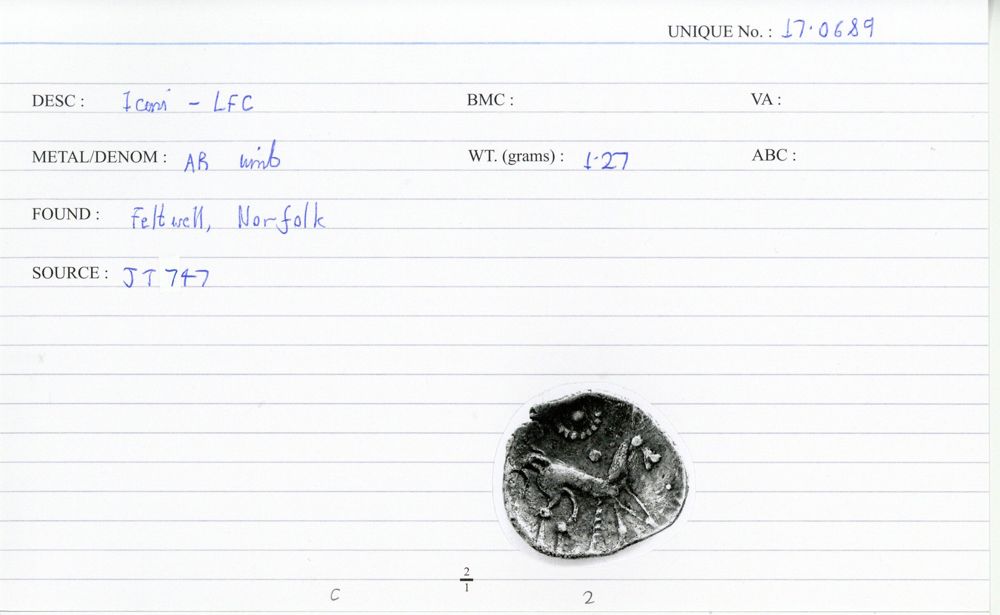 UNIQUE No. : 17·0689
DESC : Iceni - LFC BMC : VA :
METAL/DENOM : AR unit WT. (grams) : 1·27 ABC :
FOUND : Feltwell, Norfolk
SOURCE : JT 747
2
1
C 2